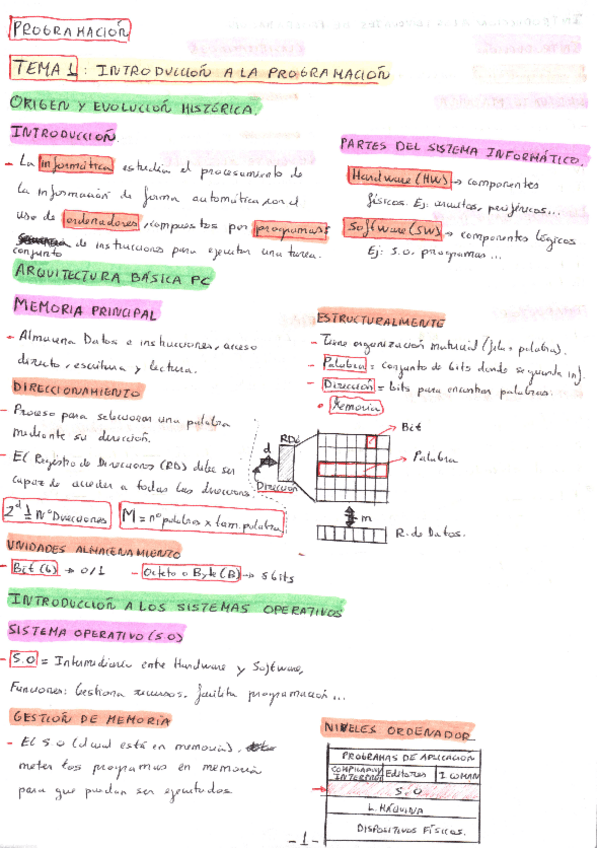 PROGRAMACIÓN
TEMA 1: INTRODUCCIÓN A LA PROGRAMACIÓN
ORIGEN Y EVOLUCIÓN HISTÓRICA.
INTRODUCCIÓN.
- La informática estudia el procesamiento de
la información de forma automática, por el
uso de ordenadores, compuestos por programas:
conjunto de instrucciones para ejecutar una tarea.
PARTES DEL SISTEMA INFORMÁTICO.
Hardware (HW) → componentes
físicos. Ej: circuitos, periféricos...
Software (SW) → componentes lógicos
Ej: S.O. programas...
ARQUITECTURA BÁSICA PC
MEMORIA PRINCIPAL
- Almacena Datos e instrucciones, acceso
directo, escritura y lectura.
DIRECCIONAMIENTO
- Proceso para seleccionar una palabra
mediante su dirección.
- El Registro de Direcciones (RD) debe ser
capaz de acceder a todas las direcciones.
2^d Nº Direcciones
M = nº palabras x tam. palabra
ESTRUCTURALMENTE
- Tiene organización matricial (fila, palabra).
- Palabra = conjunto de bits donde se guarda inf.
- Dirección = bits para encontrar palabras.
• Memoria
Bit
Palabra
RD
d
Dirección
m
R. de Datos.
UNIDADES ALMACENAMIENTO
- Bit (b) → 0/1
- Octeto o Byte (B) → 8 bits
INTRODUCCIÓN A LOS SISTEMAS OPERATIVOS
SISTEMA OPERATIVO (S.O)
- S.O = Intermediario entre Hardware y Software,
Funciones: Gestiona recursos, facilita programación...
GESTIÓN DE MEMORIA
- El S.O (el cual está en memoria),
meter los programas en memoria
para que puedan ser ejecutados
NIVELES ORDENADOR
PROGRAMAS DE APLICACIÓN
Editores
S.O
L. MÁQUINA
DISPOSITIVOS FÍSICOS.
-1-